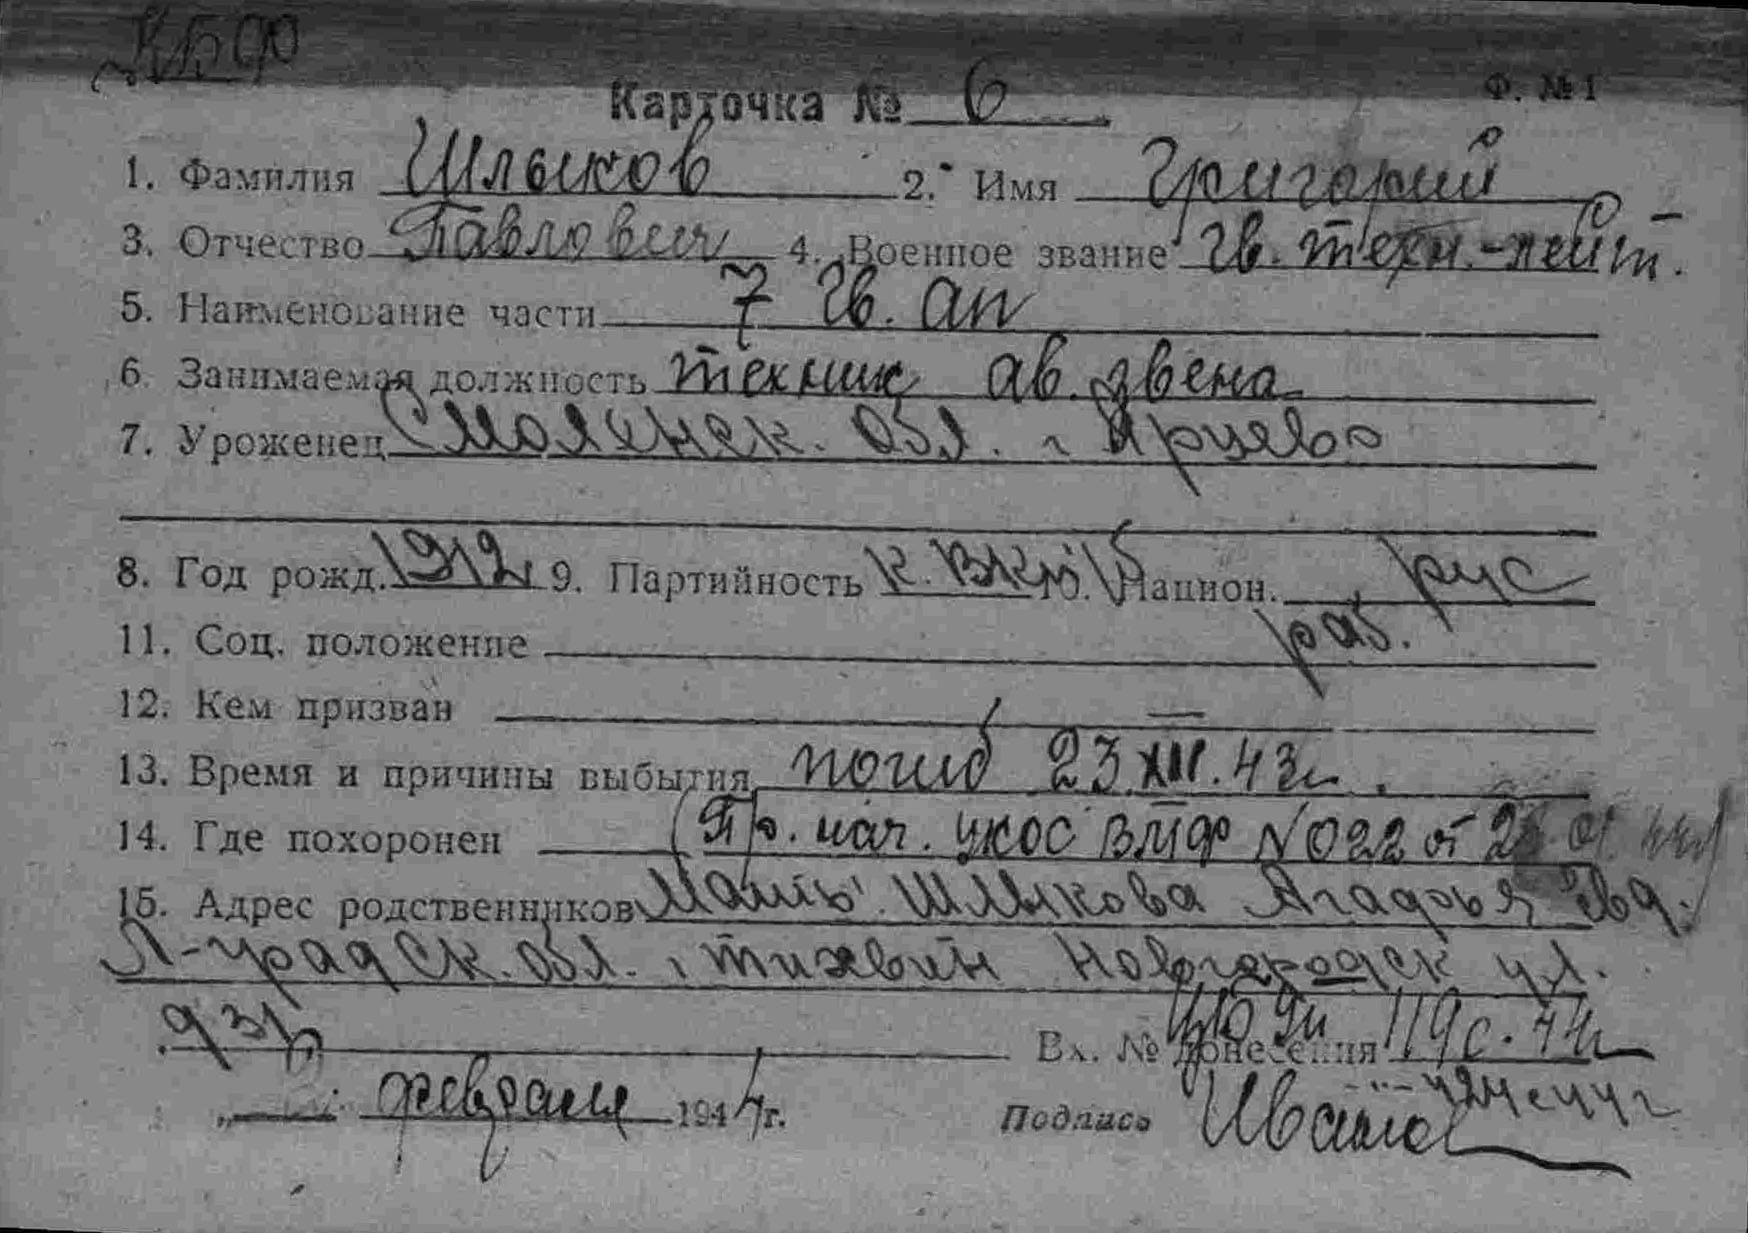 КБФ
Ф. №1
Карточка № 6
1. Фамилия Шлыков 2. Имя Григорий
3. Отчество Павлович 4. Военное звание гв. техн.-лейт.
5. Наименование части 7 гв. ап
6. Занимаемая должность техник ав. звена
7. Уроженец Смоленск. обл. г Ярцево
8. Год рожд. 1912 9. Партийность к. ВКП/б 10. Национ. рус
11. Соц. положение раб.
12. Кем призван
13. Время и причины выбытия погиб 23.XII.43г.
14. Где похоронен (Пр. нач. УКОС ВМФ №022 от
15. Адрес родственников Мать Шлыкова Агафья Евд.
Л-градск. обл. г Тихвин Новгородск ул.
д 31
Вх. № донесения 119с. 44г
февраля 1944 г. Подпись